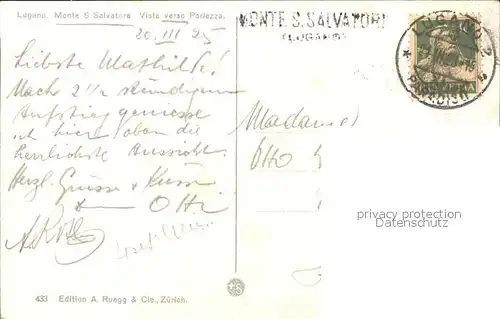 Lugano. Monte S. Salvatore Vista verso Porlezza.
20. III 25
MONTE S. SALVATORE
(LUGANO)
LUGANO 2
HELVETIA
Liebste Mathilde!
Nach 2 1/2 stündigem
Aufstieg geniesse
ich hier oben die
herrlichste Aussicht.
Herzl. Grüsse + Küsse
Otti
Madame
Otto
privacy protection
Datenschutz
433 Edition A. Ruegg & Cie., Zürich.